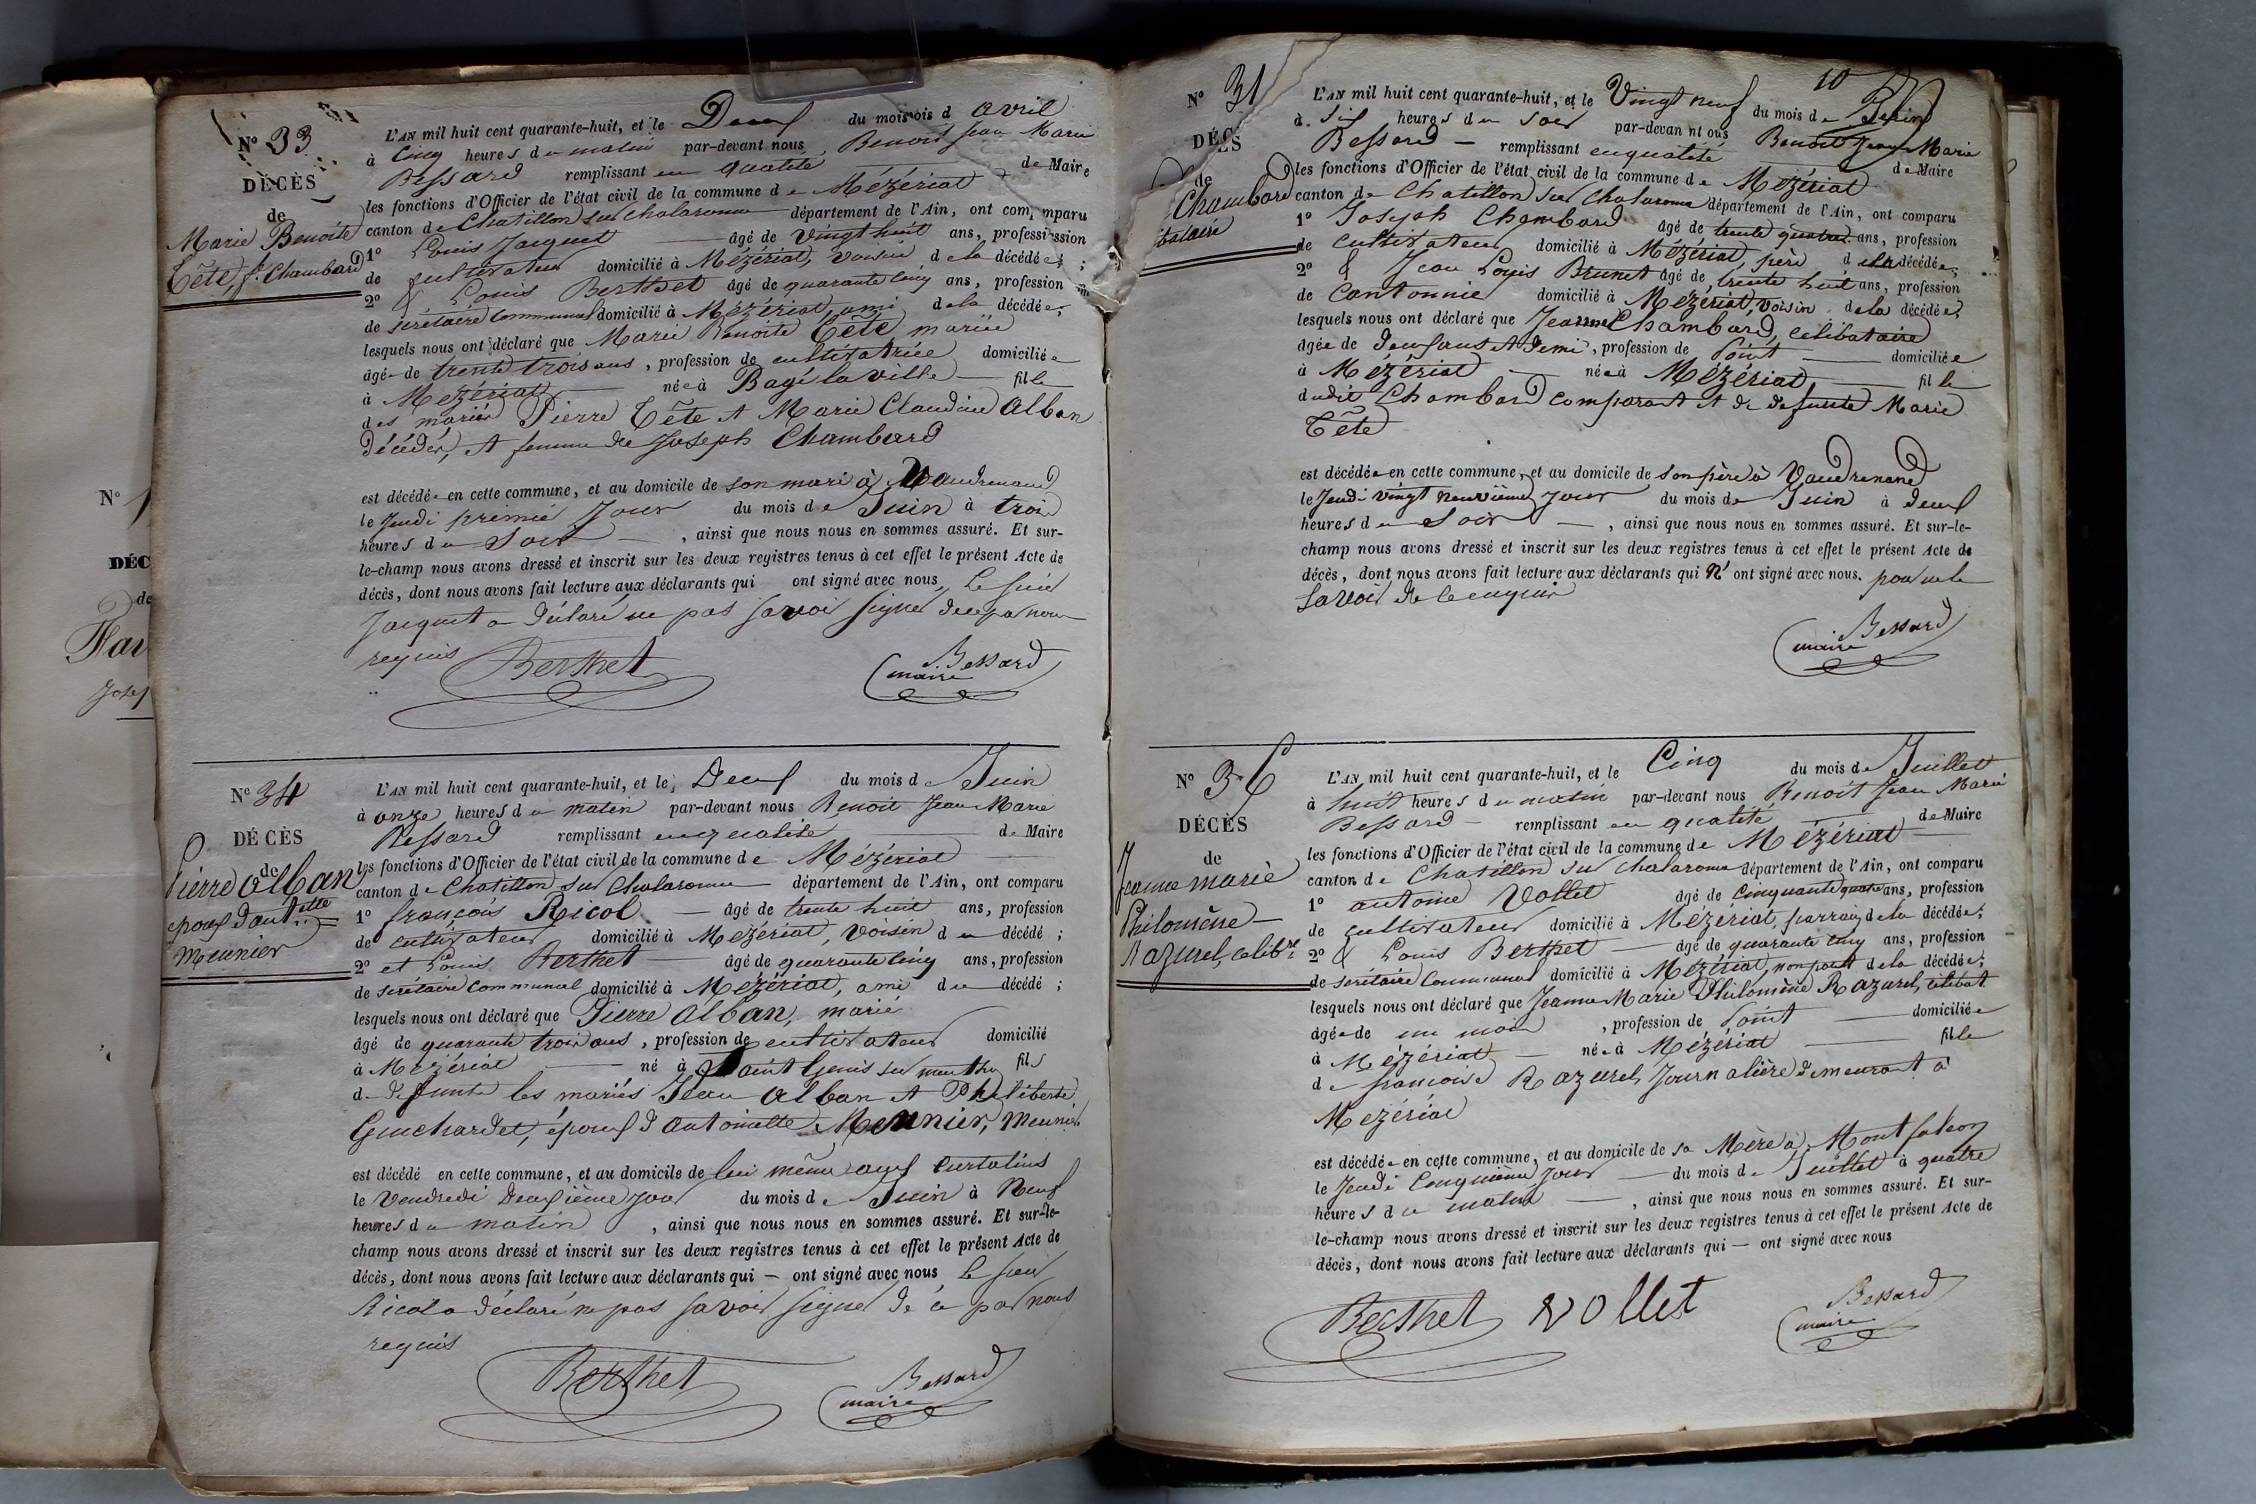 N° 33
DÉCÈS
de
Marie Benoite
Tête, f. Chambard
L'AN mil huit cent quarante-huit, et le Deux du mois d avril
à cinq heures du matin par-devant nous Benoit Jean Marie
Bessard remplissant en qualité de Maire
les fonctions d'Officier de l'état civil de la commune de Mézériat
canton de Chatillon sur Chalaronne département de l'Ain, ont comparu
1° Louis Jacquet âgé de vingt huit ans, profession
de cultivateur domicilié à Mézériat, voisin de la décédée;
2° & Louis Berthet âgé de quarante cinq ans, profession
de secrétaire communal domicilié à Mézériat, ami de la décédée,
lesquels nous ont déclaré que Marie Benoite Tête mariée
âgée de trente trois ans, profession de cultivatrice domiciliée
à Mézériat née à Bagé la ville fille
des mariés Pierre Tête et Marie Claudine Alban
décédés, et femme de Joseph Chambard
est décédée en cette commune, et au domicile de son mari à Vaudrenand
le Jeudi premier jour du mois de Juin à trois
heures du soir, ainsi que nous nous en sommes assuré. Et sur-
le-champ nous avons dressé et inscrit sur les deux registres tenus à cet effet le présent Acte de
décès, dont nous avons fait lecture aux déclarants qui ont signé avec nous, le sieur
Jacquet a déclaré ne pas savoir signer de ce par nous
requis
Berthet
Bessard
maire
N° 34
DÉCÈS
de
Pierre Alban
époux d'Antette
Meunier
L'AN mil huit cent quarante-huit, et le Deux du mois de Juin
à onze heures du matin par-devant nous Benoit Jean Marie
Bessard remplissant en qualité de Maire
les fonctions d'Officier de l'état civil de la commune de Mézériat
canton de Chatillon sur Chalaronne département de l'Ain, ont comparu
1° françois Ricol âgé de trente huit ans, profession
de cultivateur domicilié à Mézériat, voisin du décédé;
2° et Louis Berthet âgé de quarante cinq ans, profession
de secrétaire communal domicilié à Mézériat, ami du décédé;
lesquels nous ont déclaré que Pierre Alban, marié
âgé de quarante trois ans, profession de cultivateur domicilié
à Mézériat né à Saint Genis sur menthon fils
de defunts les mariés Jean Alban et Philiberte
Guichardet, époux d'Antoinette Meunier, Meunier
est décédé en cette commune, et au domicile de lui même aux Curtalins
le Vendredi Deuxième jour du mois de Juin à Neuf
heures du matin, ainsi que nous nous en sommes assuré. Et sur-le-
champ nous avons dressé et inscrit sur les deux registres tenus à cet effet le présent Acte de
décès, dont nous avons fait lecture aux déclarants qui — ont signé avec nous le sieur
Ricol a déclaré ne pas savoir signer de ce par nous
requis
Berthet
Bessard
maire
10
N° 31
DÉCÈS
de
Chambard
L'AN mil huit cent quarante-huit, et le Vingt neuf du mois de Juin
à six heures du soir par-devant nous Benoit Jean Marie
Bessard — remplissant en qualité de Maire
les fonctions d'Officier de l'état civil de la commune de Mézériat
canton de Chatillon sur Chalaronne département de l'Ain, ont comparu
1° Joseph Chambard âgé de trente quatre ans, profession
de cultivateur domicilié à Mézériat, père de la décédée;
2° & Jean Louis Brunet âgé de trente huit ans, profession
de cantonnier domicilié à Mézériat, voisin de la décédée;
lesquels nous ont déclaré que Jeanne Chambard, célibataire
âgée de deux ans et demi, profession de point domiciliée
à Mézériat née à Mézériat fille
dudit Chambard comparant et de defunte Marie
Tête
est décédée en cette commune, et au domicile de son père à Vaudrenand
le Jeudi vingt neuvième jour du mois de Juin à deux
heures du soir, ainsi que nous nous en sommes assuré. Et sur-le-
champ nous avons dressé et inscrit sur les deux registres tenus à cet effet le présent Acte de
décès, dont nous avons fait lecture aux déclarants qui n'ont signé avec nous. pour ne le
savoir de ce enquis
Bessard
maire
N° 36
DÉCÈS
de
Jeanne Marie
Philomène
Razurel, celibre
L'AN mil huit cent quarante-huit, et le Cinq du mois de Juillet
à huit heures du matin par-devant nous Benoit Jean Marie
Bessard — remplissant en qualité de Maire
les fonctions d'Officier de l'état civil de la commune de Mézériat
canton de Chatillon sur Chalaronne département de l'Ain, ont comparu
1° antoine Vollet âgé de cinquante quatre ans, profession
de cultivateur domicilié à Mézériat, parrain de la décédée;
2° & Louis Berthet âgé de quarante cinq ans, profession
de secrétaire communal domicilié à Mézériat, non parent de la décédée;
lesquels nous ont déclaré que Jeanne Marie Philomène Razurel, célibat
âgée de un mois, profession de point domiciliée
à Mézériat née à Mézériat fille
de françoise Razurel, Journalière demeurant à
Mézériat
est décédée en cette commune, et au domicile de sa Mère à Montfalcon
le Jeudi Cinquième jour du mois de Juillet à quatre
heures du matin, ainsi que nous nous en sommes assuré. Et sur-
le-champ nous avons dressé et inscrit sur les deux registres tenus à cet effet le présent Acte de
décès, dont nous avons fait lecture aux déclarants qui — ont signé avec nous
Berthet Vollet
Bessard
maire